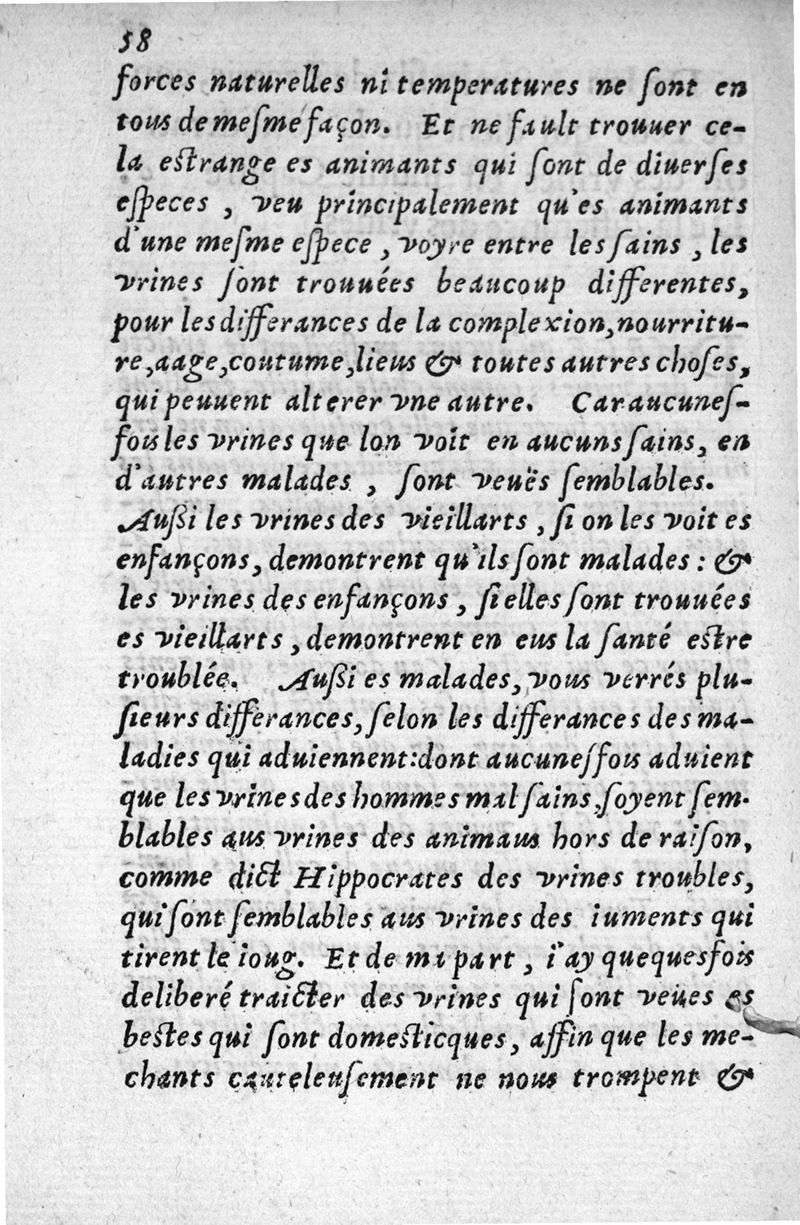 58
forces naturelles ni temperatures ne ſont en
tous de meſme façon. Et ne fault trouuer ce-
la eſtrange es animants qui ſont de diuerſes
eſpeces , veu principalement qu'es animants
d'une meſme eſpece , voyre entre les ſains , les
vrines ſont trouuées beaucoup differentes,
pour les differances de la complexion, nourritu-
re, aage, coutume, lieus & toutes autres choſes,
qui peuuent alterer vne autre. Car aucuneſ-
fois les vrines que lon voit en aucuns ſains, en
d'autres malades , ſont veuës ſemblables.
Außi les vrines des vieillarts , ſi on les voit es
enfançons, demontrent qu'ils ſont malades : &
les vrines des enfançons , ſi elles ſont trouuées
es vieillarts , demontrent en eus la ſanté eſtre
troublée. Außi es malades, vous verrés plu-
ſieurs differances, ſelon les differances des ma-
ladies qui aduiennent: dont aucuneſfois aduient
que les vrines des hommes mal ſains, ſoyent ſem-
blables aus vrines des animaus hors de raiſon,
comme dict Hippocrates des vrines troubles,
qui ſont ſemblables aus vrines des iuments qui
tirent le ioug. Et de ma part , i'ay quequesfois
deliberé traicter des vrines qui ſont veües es
beſtes qui ſont domeſticques, affin que les me-
chants cauteleuſement ne nous trompent &